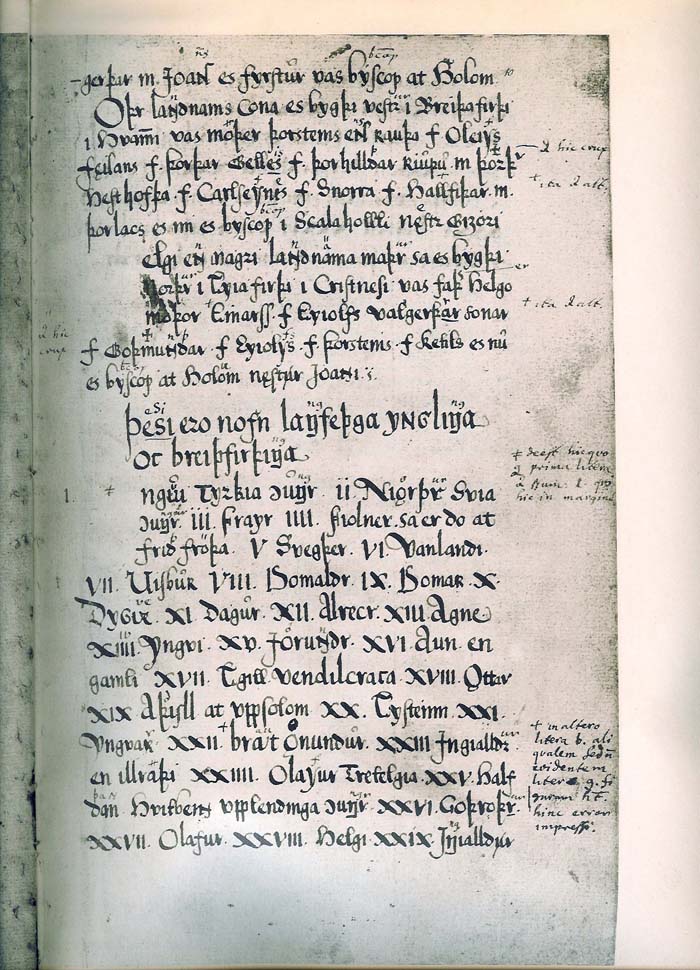 gerþar m. Joans es fyrstur vas byscop at Holom
Oþr landnams cona es bygþi vestr i Breiþafirþi
i Hvammi vas moþer þorsteins ens Rauþa f Oleifs
feilans f. þorþar Gelles f. þorhilldar Riupu m þorþ
Hesthofþa f Carlsefnes f. Snorra f. Hallfriþar m.
þorlacs es nu es byscop i Scalahollti nęstr Gizori
elgi en magri landnama maþr sa es bygþi
norþr i Eyiafirþi i Cristnesi vas faþ Helgo
moþor Einarss f Eyiolfs valgerþar sonar
f Goþmundar f Eyiolfs f þorsteins f Ketils es nu
es byscop at Holom nęstur Joani
þesi ero nofn langfeþga YNGLinga
oc breiþfirþinga
1. ngvi Tyrkia cunungr. ii. Niorþr Svia
cunungr. III. Frayr IIII. Fiolner. sa er do at
friþ froþa. V Svegþer. VI. Vanlandi.
VII. Uisbur VIII. Domaldr. IX. Domar X.
Dygve XI. Dagur. XII. Alrecr. XIII Agne
XIIII. Yngvi. XV. Jorundr. XVI Aun en
gamli XVII. Egill vendilcraca XVIII. Ottar
XIX Aþisll at vppsolom XX. Eysteinn XXI.
Yngvarr XXII braut Onundur. XXIII Ingialldr
en illraþi XXIIII. Olafur Tretelgia XXV. Half
dan Hvitbein vpplendinga cunungr. XXVI. Goþroþr.
XXVII. Olafur. XXVIII. Helgi XXIX. Ingialldur
+ ita alt.
+ ita alt.
+ deest hic quo
prima litera
hic in margine
+ in altero
litera b. ali
qualem sed
evidentem
hinc error
impress.